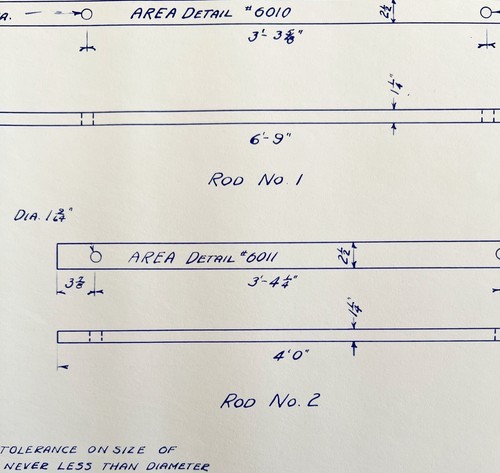 A.
AREA DETAIL #6010
2½
3'-3⅝"
1¼"
6'-9"
ROD NO. 1
DIA. 1 9/64"
AREA DETAIL #6011
2½
3⅞
3'-4¼"
1¼"
4'0"
ROD NO. 2
TOLERANCE ON SIZE OF
NEVER LESS THAN DIAMETER